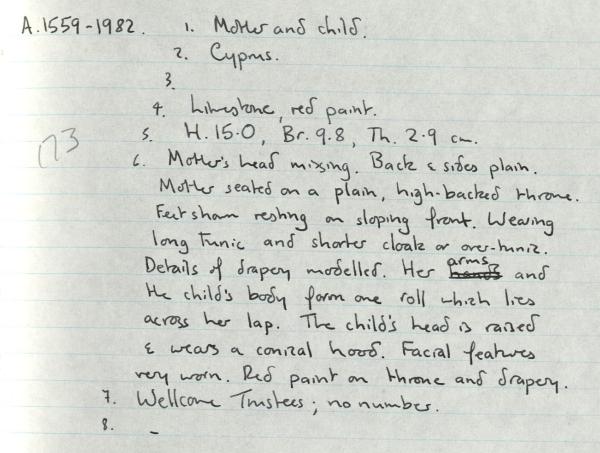 A.1559-1982. 1. Mother and child.
2. Cyprus.
3.
4. Limestone, red paint.
5. H. 15.0, Br. 9.8, Th. 2.9 cm.
173
6. Mother's head missing. Back & sides plain.
Mother seated on a plain, high-backed throne.
Feet shown resting on sloping front. Wearing
long tunic and shorter cloak or over-tunic.
Details of drapery modelled. Her arms and
the child's body form one roll which lies
across her lap. The child's head is raised
& wears a conical hood. Facial features
very worn. Red paint on throne and drapery.
7. Wellcome Trustees; no number.
8. -